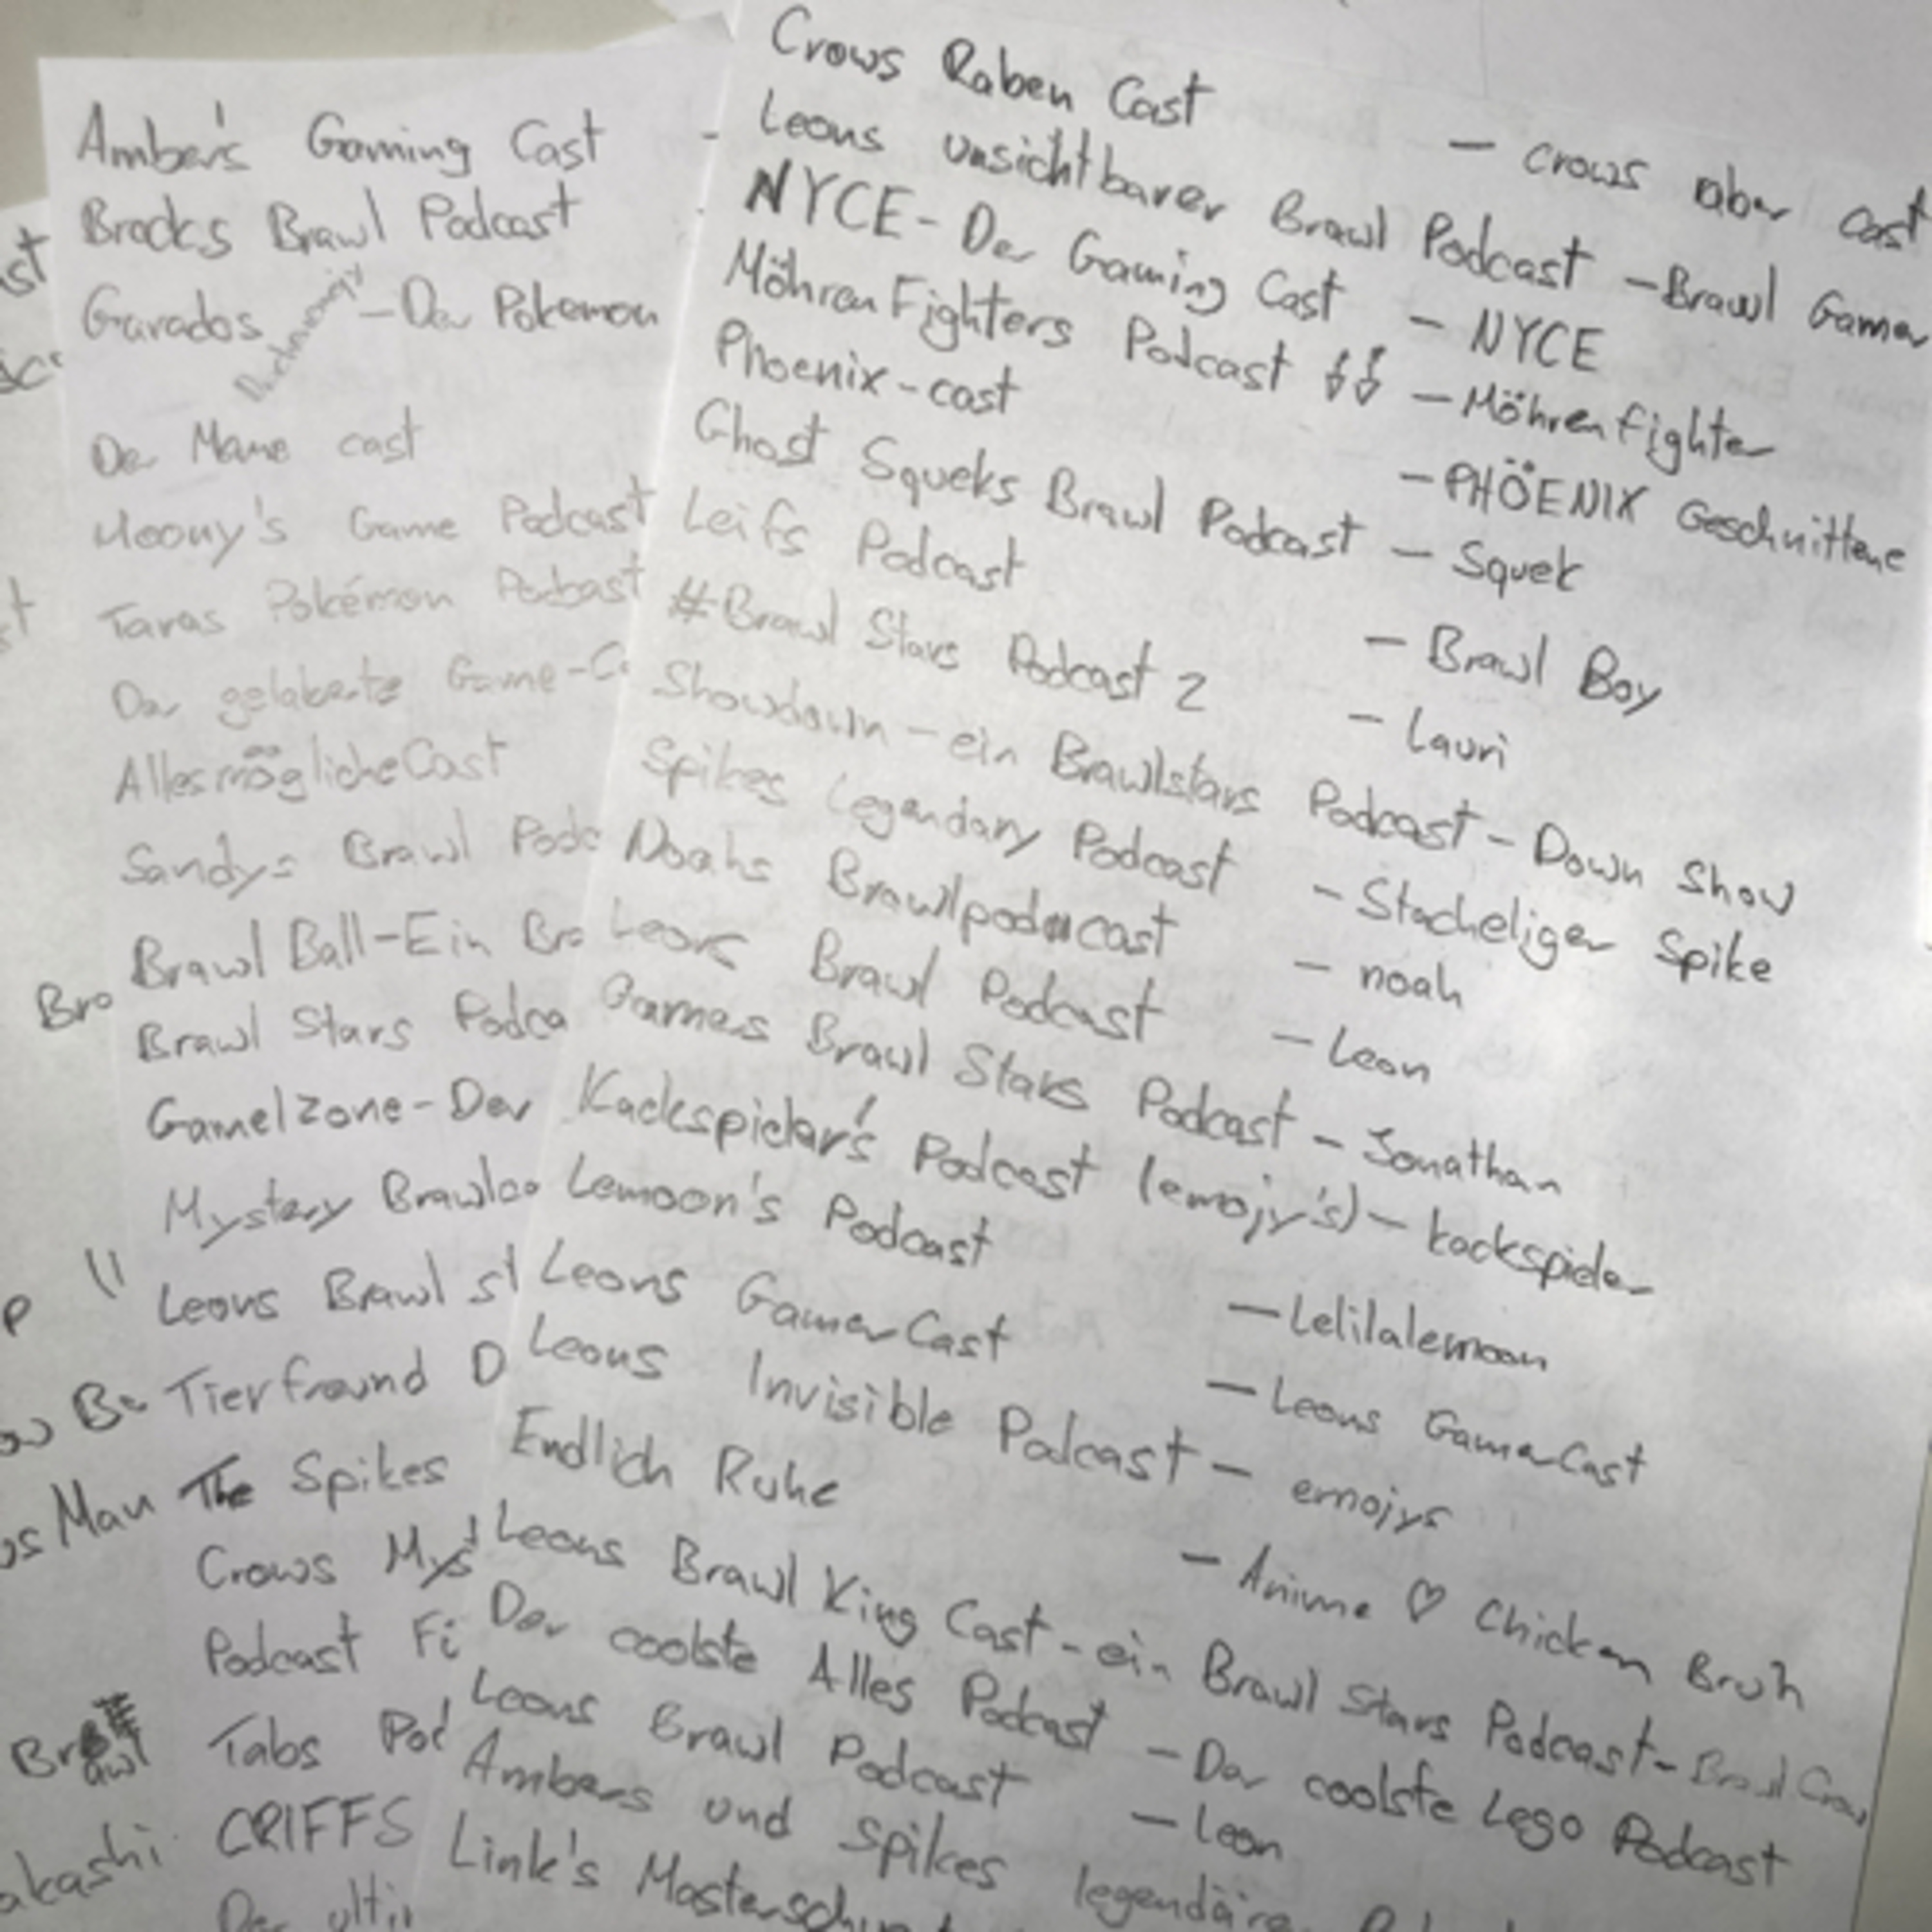 Crows Raben Cast - crows aber cast
Leons unsichtbarer Brawl Podcast - Brawl Gamer
NYCE - Der Gaming Cast - NYCE
Möhren Fighters Podcast - Möhrenfighter
Phoenix-cast - PHÖENIX Geschnittene
Ghost Squeks Brawl Podcast - Squek
Leifs Podcast - Brawl Boy
#Brawl Stars Podcast 2 - Lauri
Showdown - ein Brawlstars Podcast - Down Show
Spikes Legendary Podcast - Stacheliger Spike
Noahs Brawlpodcast - noah
Leons Brawl Podcast - Leon
Games Brawl Stars Podcast - Jonathan
Kackspieler's Podcast (emojy's) - kackspieler
Lemoon's Podcast - Lelilalemoon
Leons GamerCast - Leons GamerCast
Leons Invisible Podcast - emojys
Endlich Ruhe - Anime ♡ Chicken Bruh
Leons Brawl King Cast - ein Brawl Stars Podcast - Brawl Crow
Der coolste Alles Podcast - Der coolste Lego Podcast
Leons Brawl Podcast - Leon
Ambers und Spikes legendärer
Link's
Amber's Gaming Cast -
Brocks Brawl Podcast -
Garados - Der Pokemon
Der Meme cast
Moony's Game Podcast
Taras Pokémon Podcast
Der gelaberte Game-C
AllesmöglicheCast
Sandys Brawl Podc
Brawl Ball - Ein Bra
Brawl Stars Podca
Gamelzone - Der
Mystery Brawlca
Leons Brawl st
Tierfreund D
The Spikes
Crows Mys
Podcast Fi
Tabs Pod
CRIFFS
Der ulti
st
st
Bro
p "
Man
Brawl
akashi